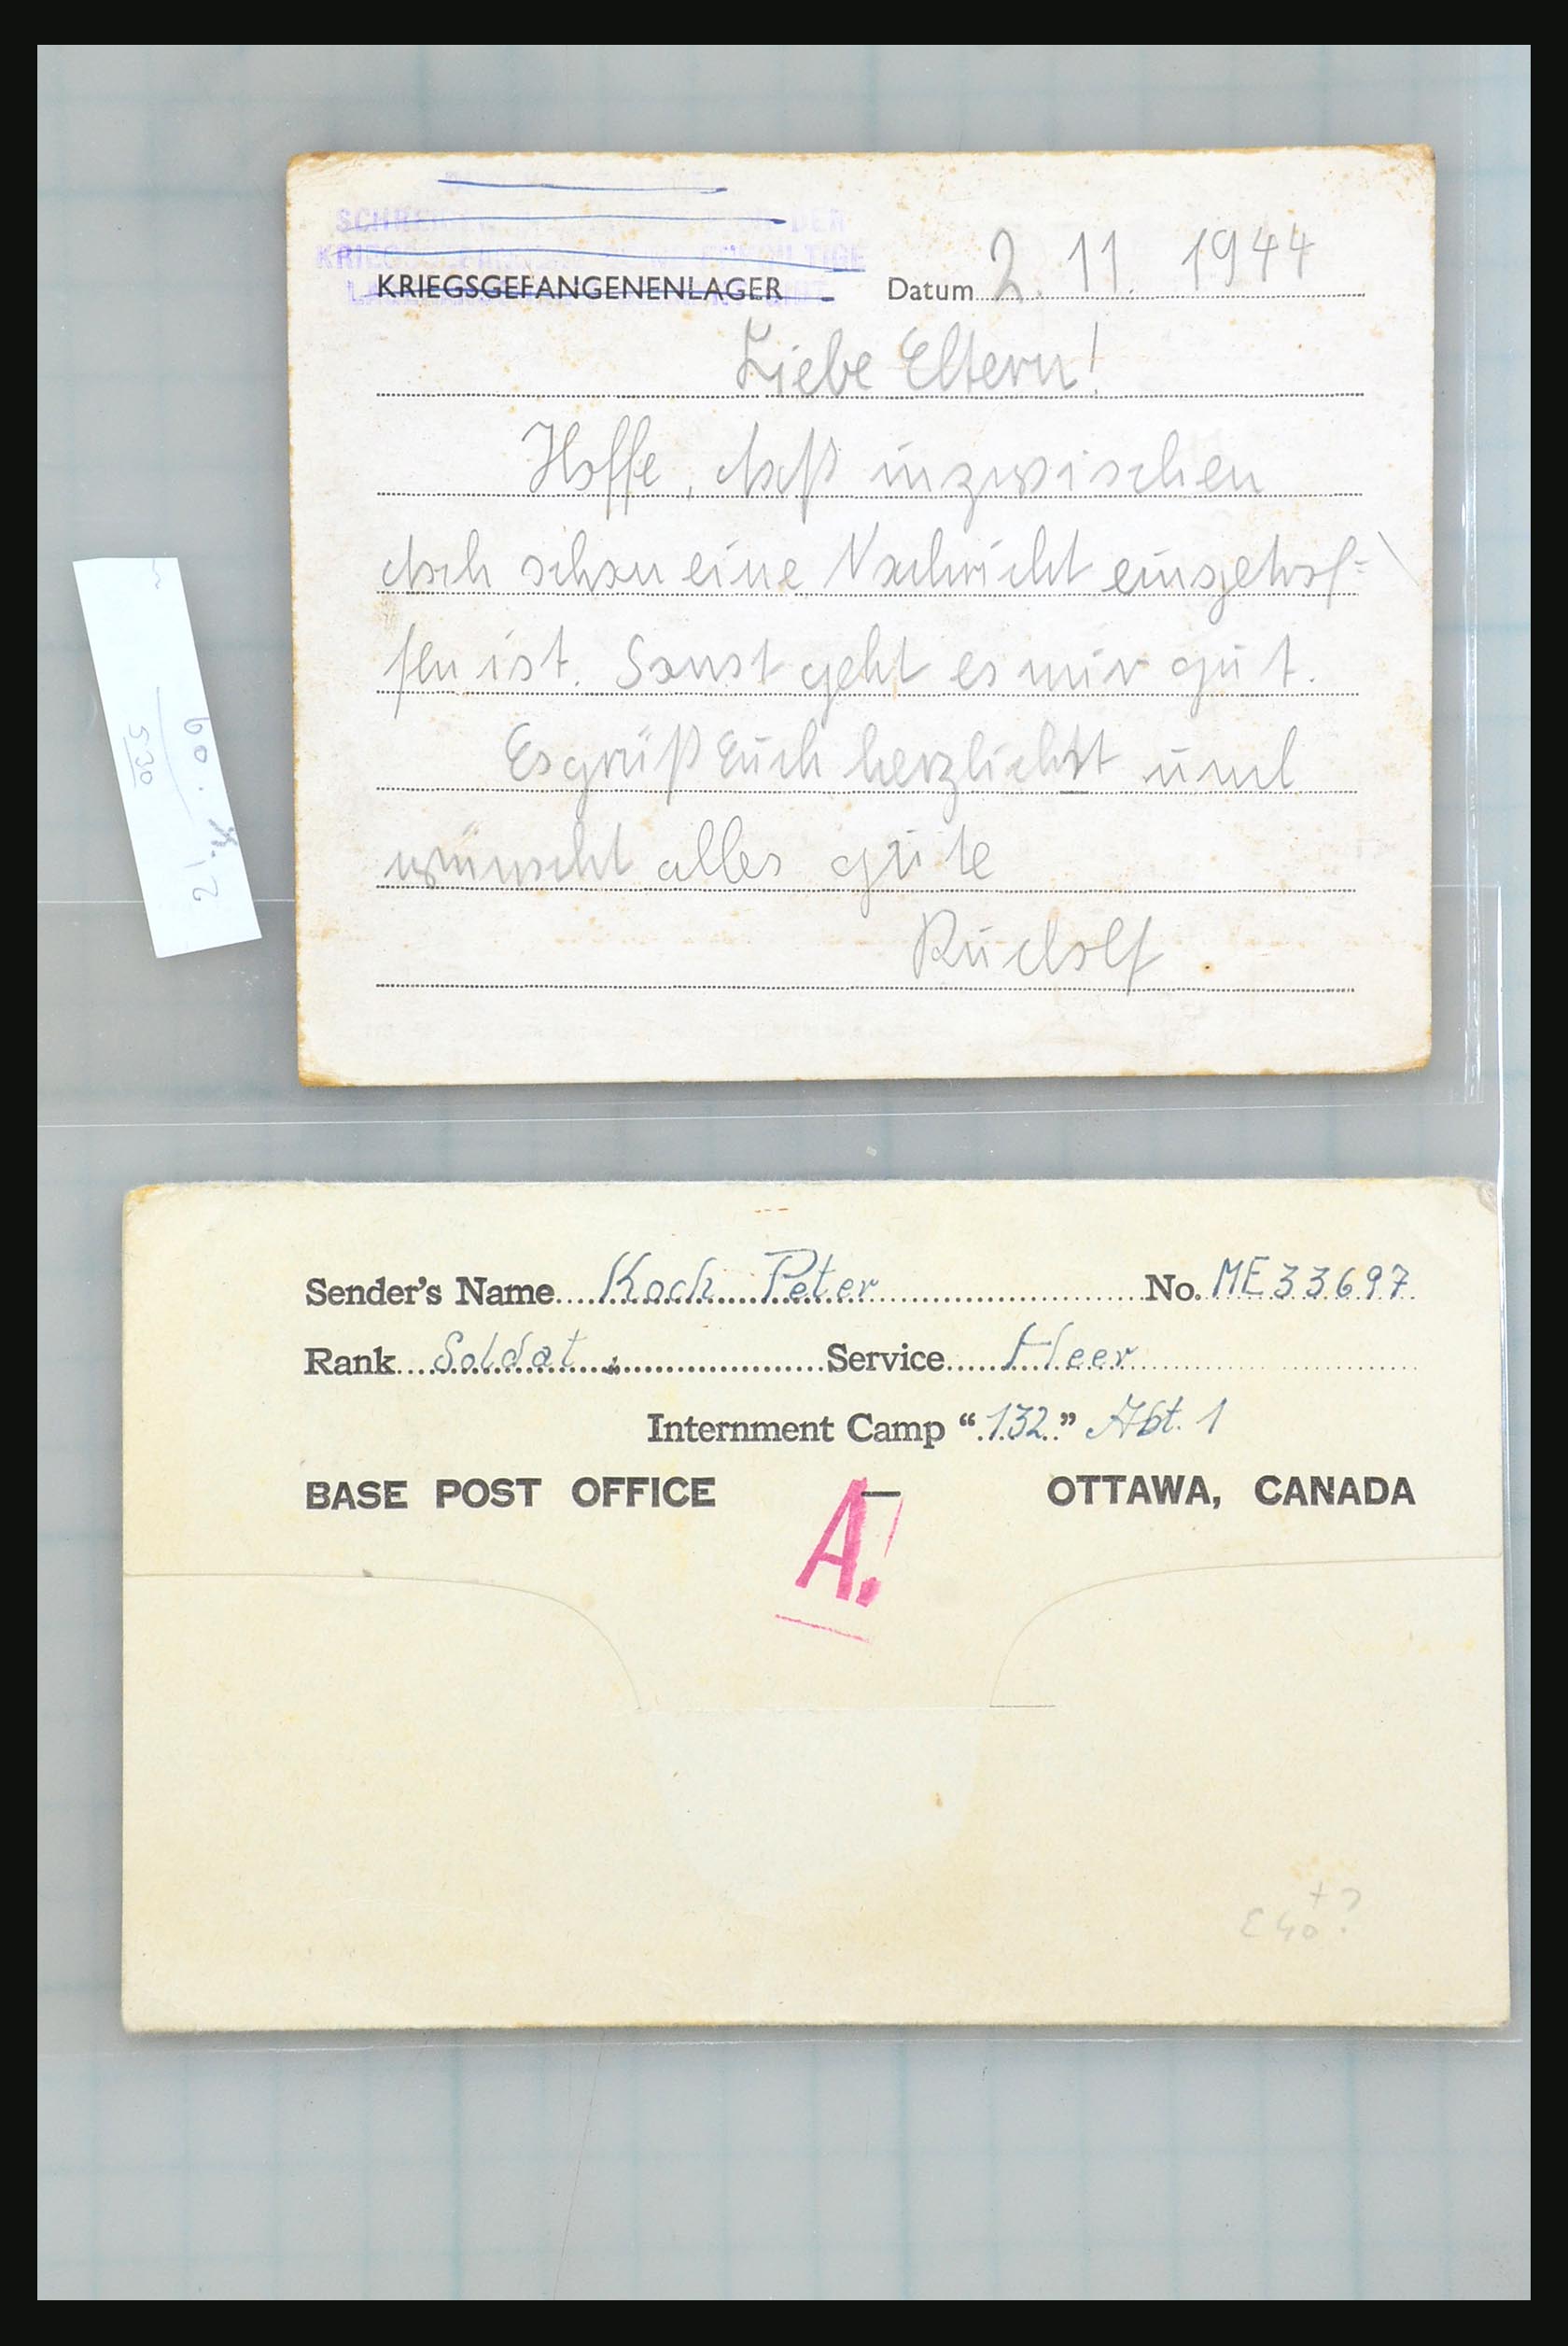 SCHREIBEN DER
KRIEGSGEFANGENEN
KRIEGSGEFANGENENLAGER Datum 2. 11. 1944
Liebe Eltern!
Hoffe, daß inzwischen
doch schon eine Nachricht eingetrof=
fen ist. Sonst geht es mir gut.
Es grüßt Euch herzlichst und
wünscht alles gute
Rudolf
60.
530
Sender's Name Koch Peter No. ME 33697
Rank Soldat Service Heer
Internment Camp "132" Abt. 1
BASE POST OFFICE — OTTAWA, CANADA
A.